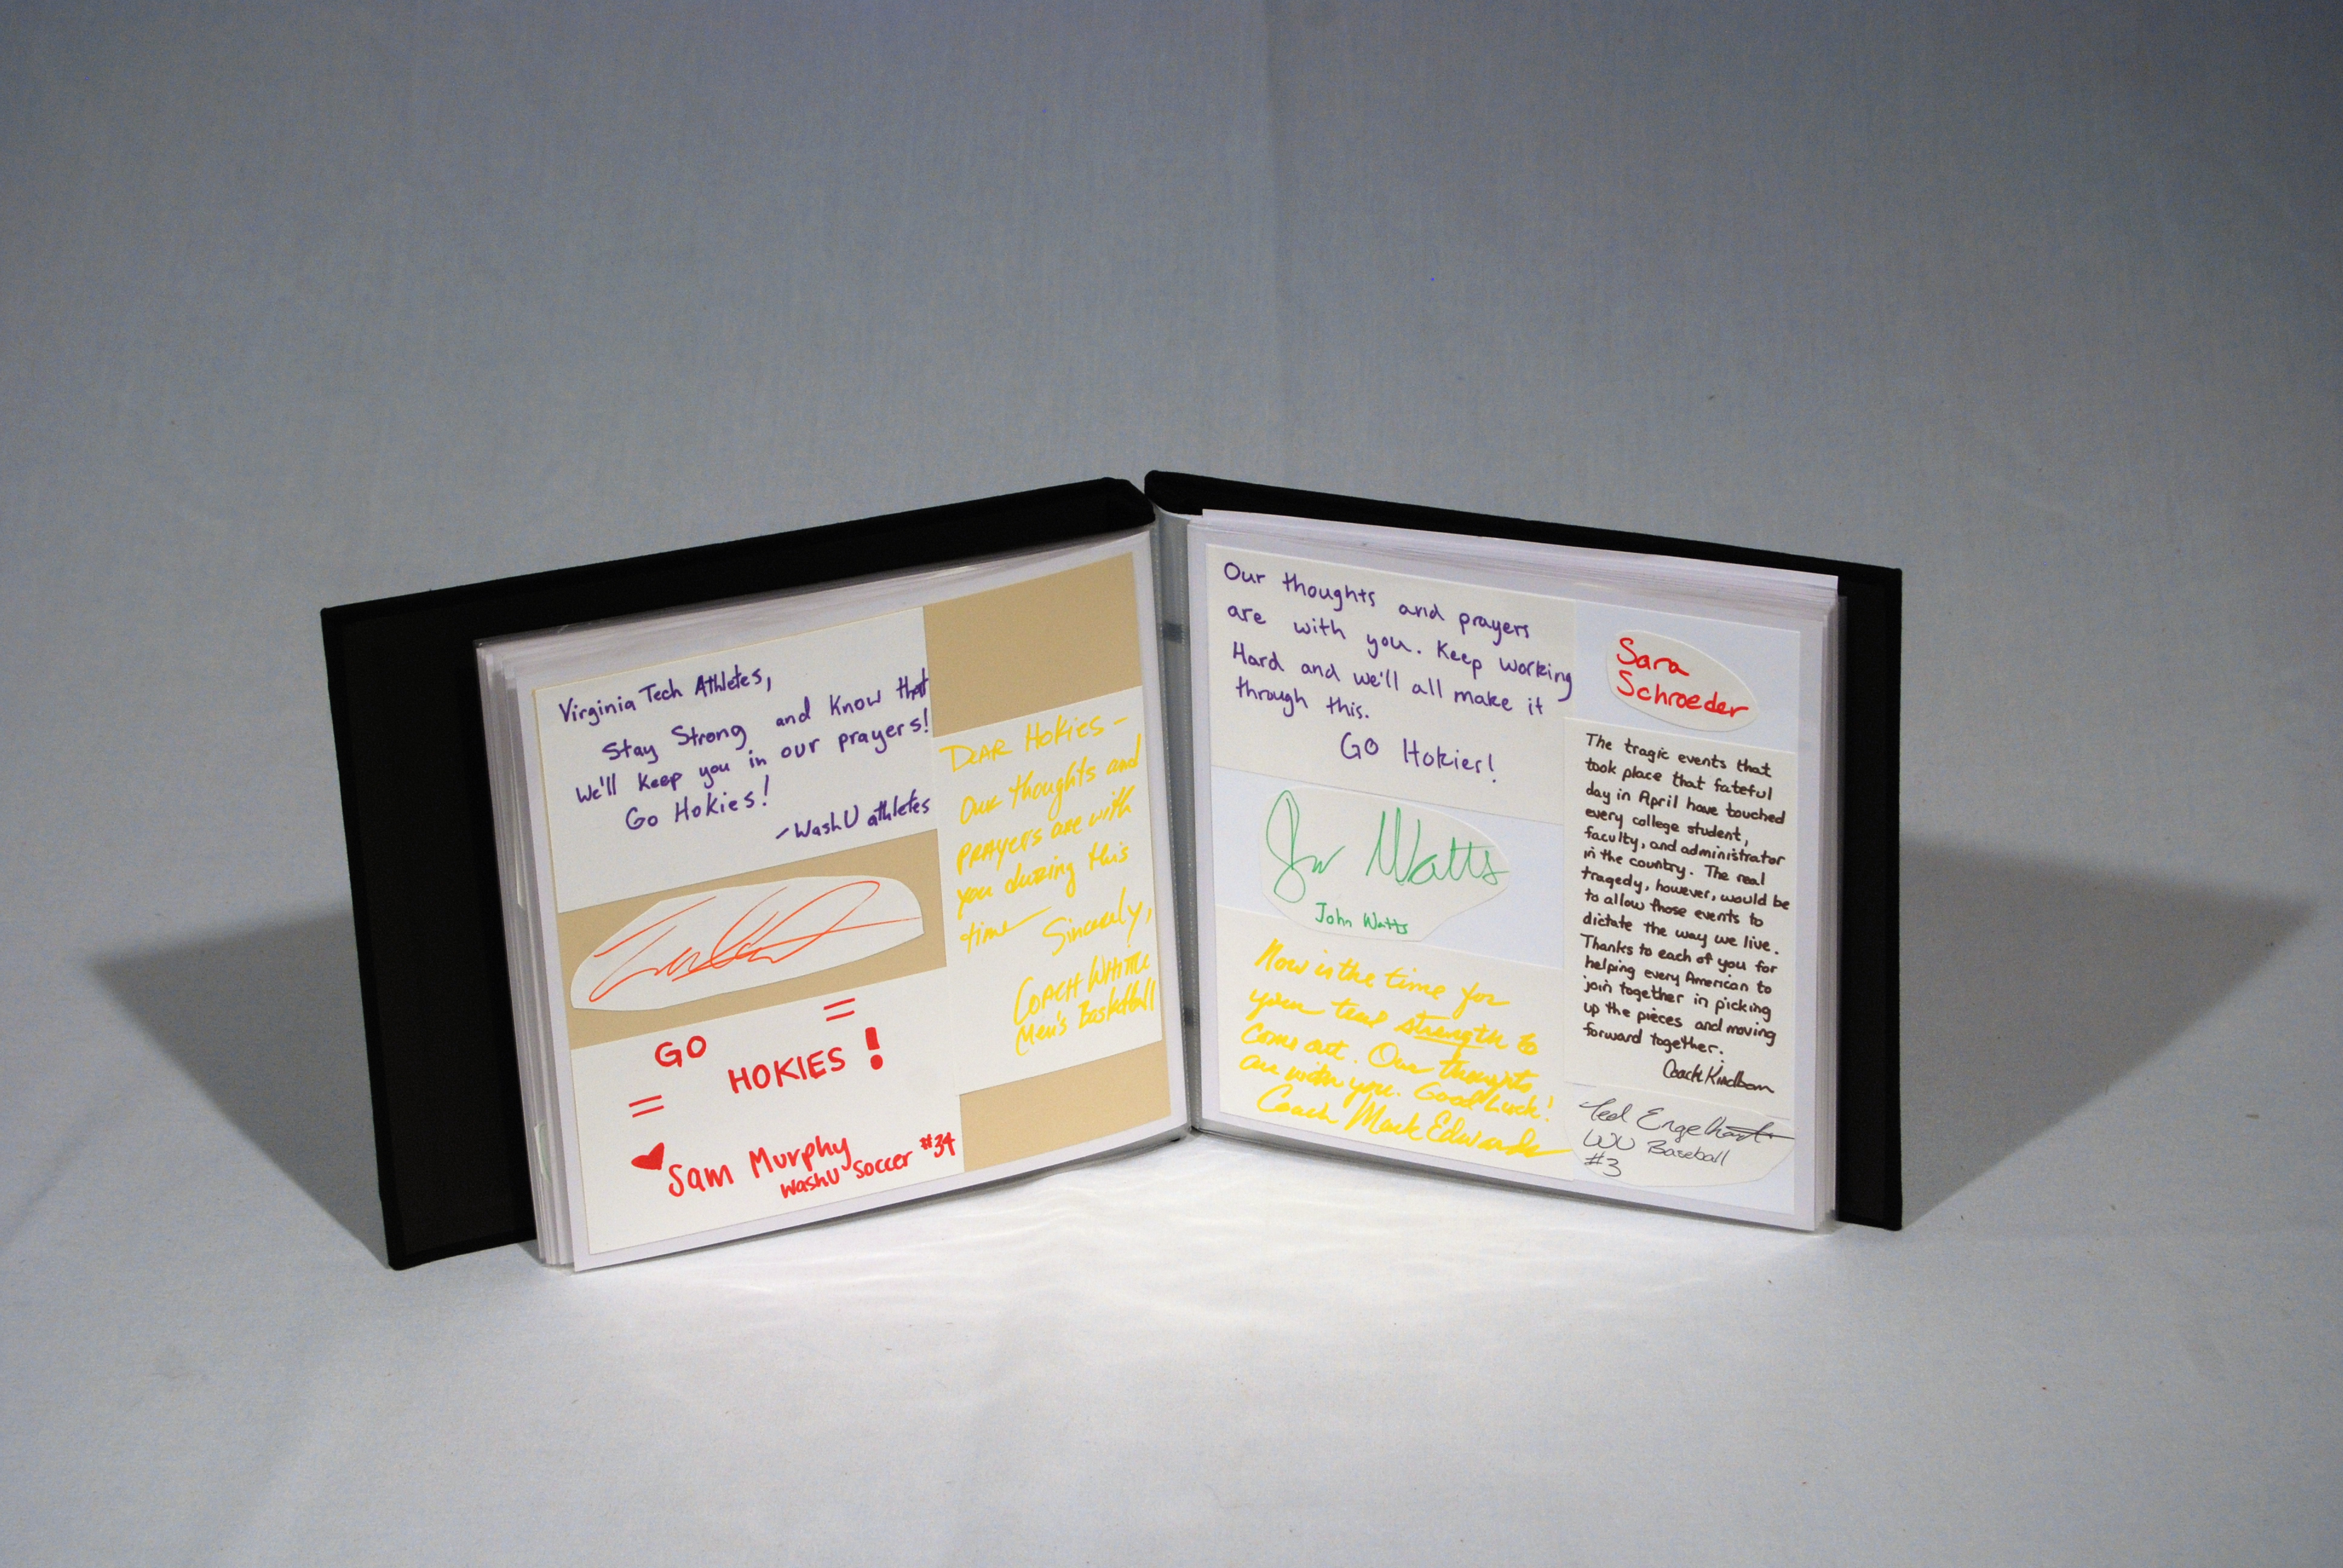 Virginia Tech Athletes,
Stay Strong and Know that
We'll keep you in our prayers!
Go Hokies!
- WashU athletes
GO
HOKIES!
Sam Murphy
WashU Soccer #34
DEAR HOKIES -
Our thoughts and
PRAYERS are with
you during this
time
Sincerely,
COACH
Men's Basketball
Our thoughts and prayers
are with you. Keep working
Hard and we'll all make it
through this.
GO Hokies!
Watts
John Watts
Now is the time for
your true strength to
come out. Our thoughts
are with you. Good Luck!
Coach Mark Edwards
Sara
Schroeder
The tragic events that
took place that fateful
day in April have touched
every college student,
faculty, and administrator
in the country. The real
tragedy, however, would be
to allow those events to
dictate the way we live.
Thanks to each of you for
helping every American to
join together in picking
up the pieces and moving
forward together.
Coach Kindbom
Ted Engelhardt
WU Baseball
#3